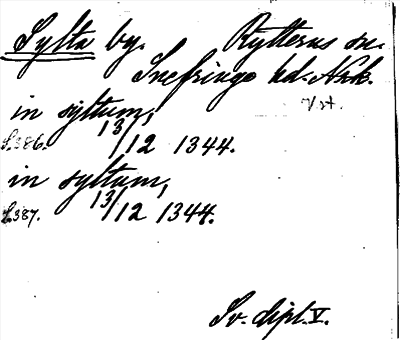 Sylta by. Rytterns sn.
Snefringe hd. Ask.
Vst.
in syltum,
S.386. 13/12 1344.
in syltum,
S.387. 13/12 1344.
Sv. dipl. V.